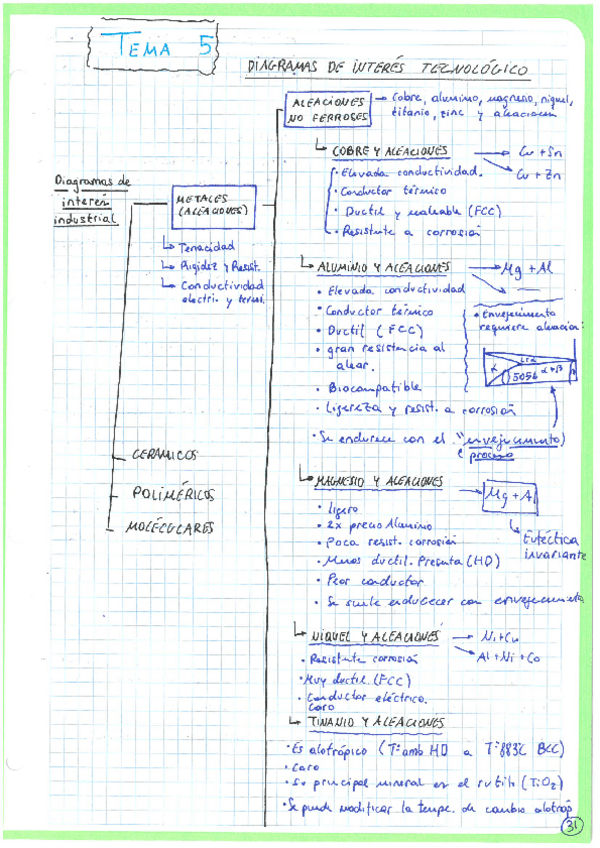 TEMA 5
DIAGRAMAS DE INTERÉS TECNOLÓGICO
Diagramas de
interés
industrial
METALES
(ALEACIONES)
Tenacidad
Rigidez y Resist.
Conductividad
electri. y termi.
CERÁMICOS
POLIMÉRICOS
MOLÉCULARES
ALEACIONES
NO FERROSES
→ Cobre, alumino, magneno, niquel,
titanio, zinc y aleaciones
COBRE Y ALEACIONES
Cu + Sn
Cu + Zn
• Elevada conductividad.
• Conductor térmico
• Ductil y maleable (FCC)
• Resistente a corrosión
ALUMINIO Y ALEACIONES
Mg + Al
• Elevada conductividad
• Conductor térmico
• Ductil (FCC)
• gran resistencia al
• Biocompatible
• Ligereza y resist. a corrosión
• Se endurece con el "envejecimento)
proceso
• Envejecimento
requiere aleación:
L+α
α
5056
α+β
β
MAGNESIO Y ALEACIONES
Mg + Al
Eutéctica
invariante
• ligero
• 2x precio Alumino
• Poca resist. corrosión
• Menos ductil. Presenta (HD)
• Peor conductor
• Se suele endurecer con envejecimiento
NÍQUEL Y ALEACIONES
Ni + Cu
Al + Ni + Co
• Resistente corrosión
• Muy ductil. (FCC)
• Conductor eléctrico.
caro
TINANIO Y ALEACIONES
• Es alotrópico (Tªamb HD a Tª883ºC BCC)
• Caro
• Su principal mineral es el rutilo (TiO2)
• Se puede modificar la tempe. de cambio alotróp
31